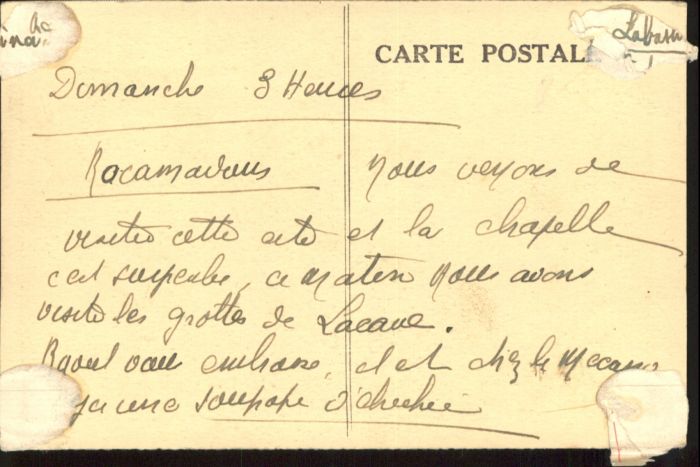 CARTE POSTALE
Labarr
Dimanche 3 Heures
Rocamadour Nous venons de
visiter cette cité et la chapelle
c'est superbe, ce matin nous avons
visité les grottes de Lacave.
Raoul vous embrasse, il est chez le Mecano
une soupape